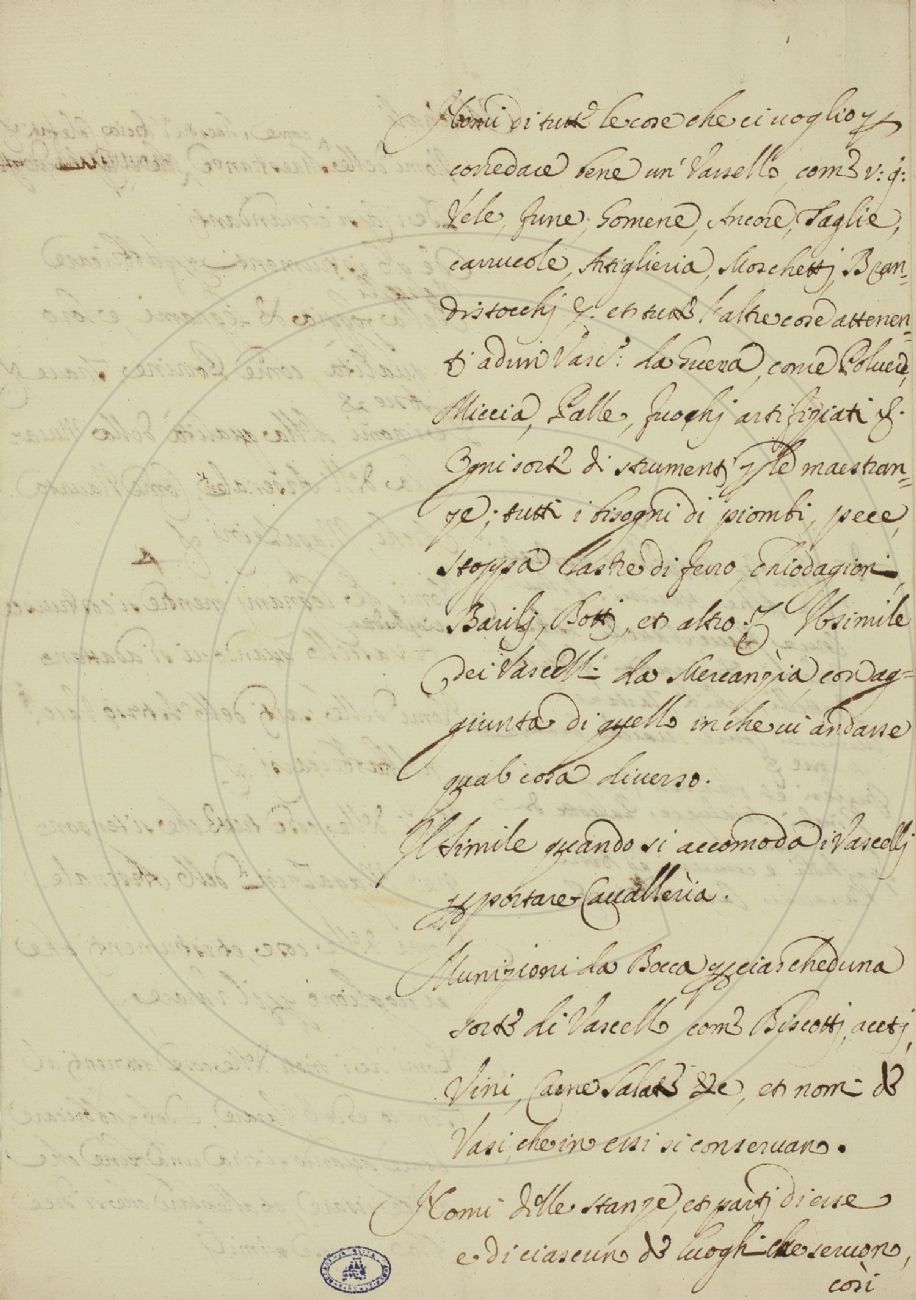 Nomi di tutte le cose che ci voglio p
corredare bene un' Vassello, come v: g:
Vele, fune, Gomene, Ancore, Taglie,
carrucole, Artiglieria, Moschettj, Bran=
distocchj &: et tutte l'altre cose attenen=
ti ad un Vasc: da Guerra, come Polvere,
Miccia, Palle, fuoghj artifiziati &.
Ogni sorte di strumentj p le maestran=
ze; tutti i bisogni di piombi, pece,
stoppa lastre di ferro, chiodagioni,
Barilj, Bottj, et altro & Il simile
dei Vascelli da Mercanzia, con ag=
giunta di quello in che vi andasse
qualc cosa diverso.
Il simile quando si accomoda i Vascellj
p portare Cavalleria.
Munizioni da Bocca p ciascheduna
sorte di Vascello come Biscottj, acetj,
Vini, Carne Salate &c, et nomi de
Vasi, che in essi si conservano.
Nomi delle stanze, et partj di esse
e di ciascun de luoghi che servon,
così